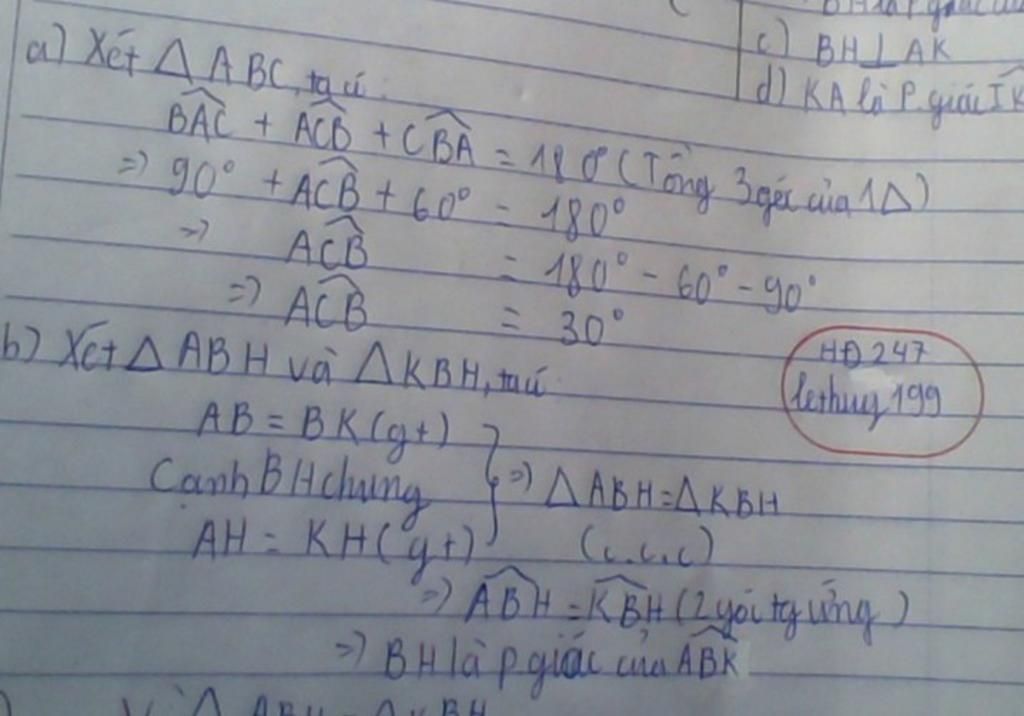 BH là P giác của
c) BH⊥AK
d) KA là P.giác IK
a) Xét △ABC, ta có:
BAC + ACB + CBA = 180° (Tổng 3 góc của 1△)
=> 90° + ACB + 60° = 180°
=> ACB = 180° - 60° - 90°
=> ACB = 30°
b) Xét △ABH và △KBH, ta có:
AB = BK (gt)
Cạnh BH chung
AH = KH (gt)
} => △ABH = △KBH
(c.c.c)
=> ABH = KBH (2 góc tg ứng)
=> BH là p giác của ABK
HĐ 247
lethuy 199
Vì △ABH = △KBH